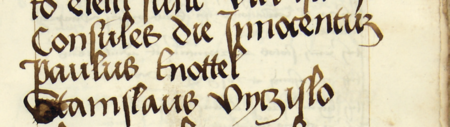 Consules die Innocentum
Paulus Knottel
Stanislaus Vyczislo